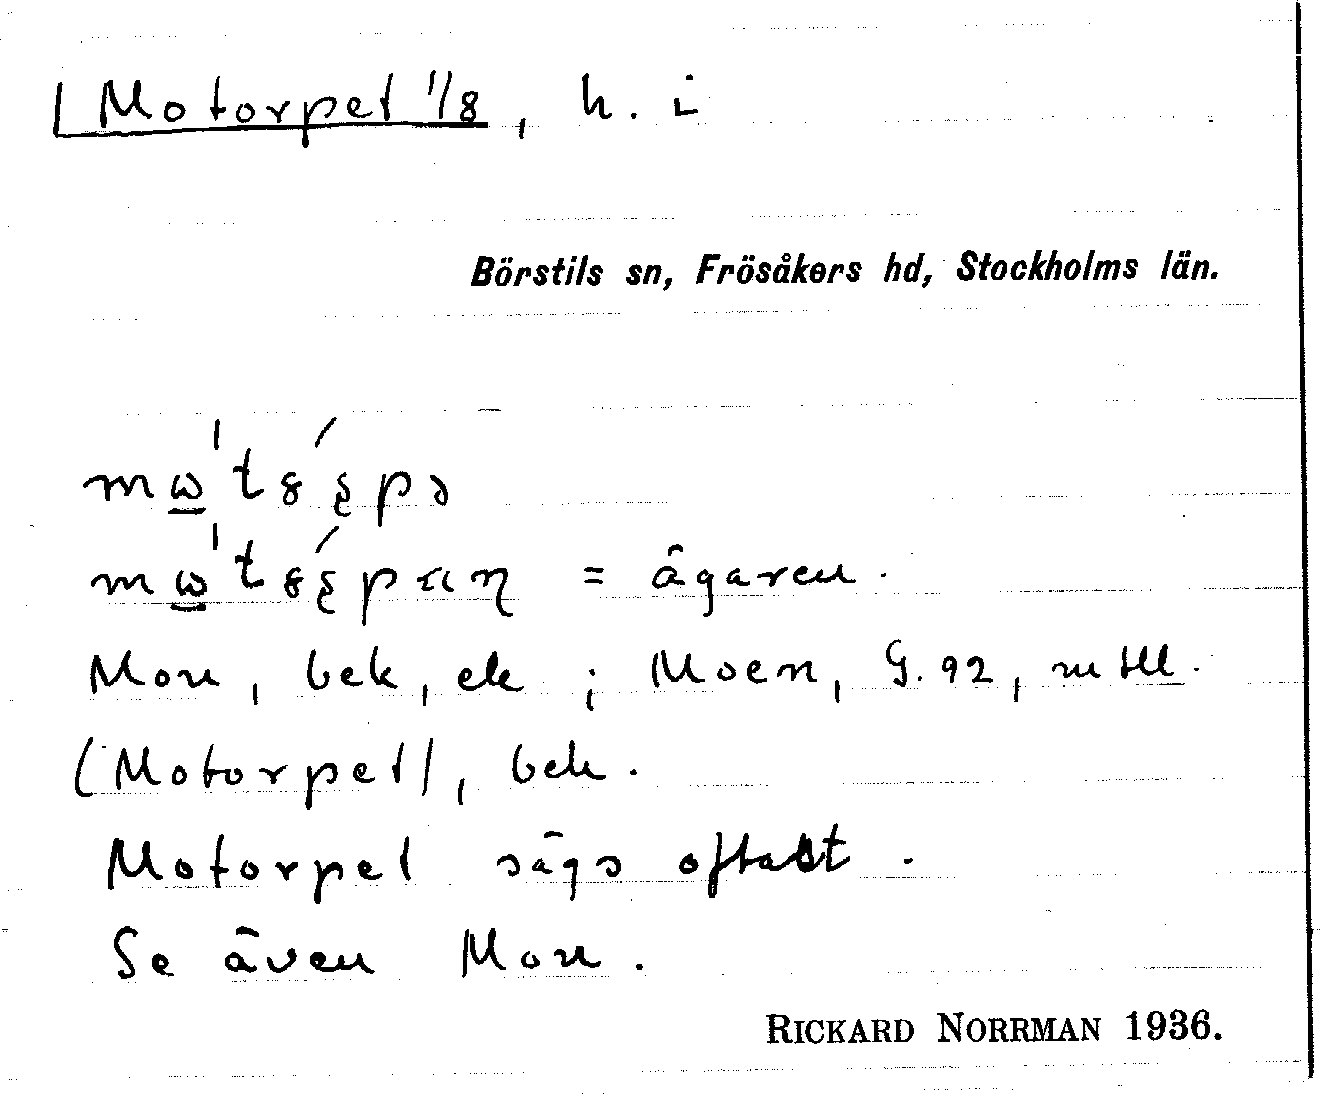 Motorpet 1/8, h. i
Börstils sn, Frösåkers hd, Stockholms län.
= ägaren.
Mon, bek, ek; Moen, G. 92, mtll.
(Motorpet), bek.
Motorpet sägs oftast.
Se även Mon.
RICKARD NORRMAN 1936.